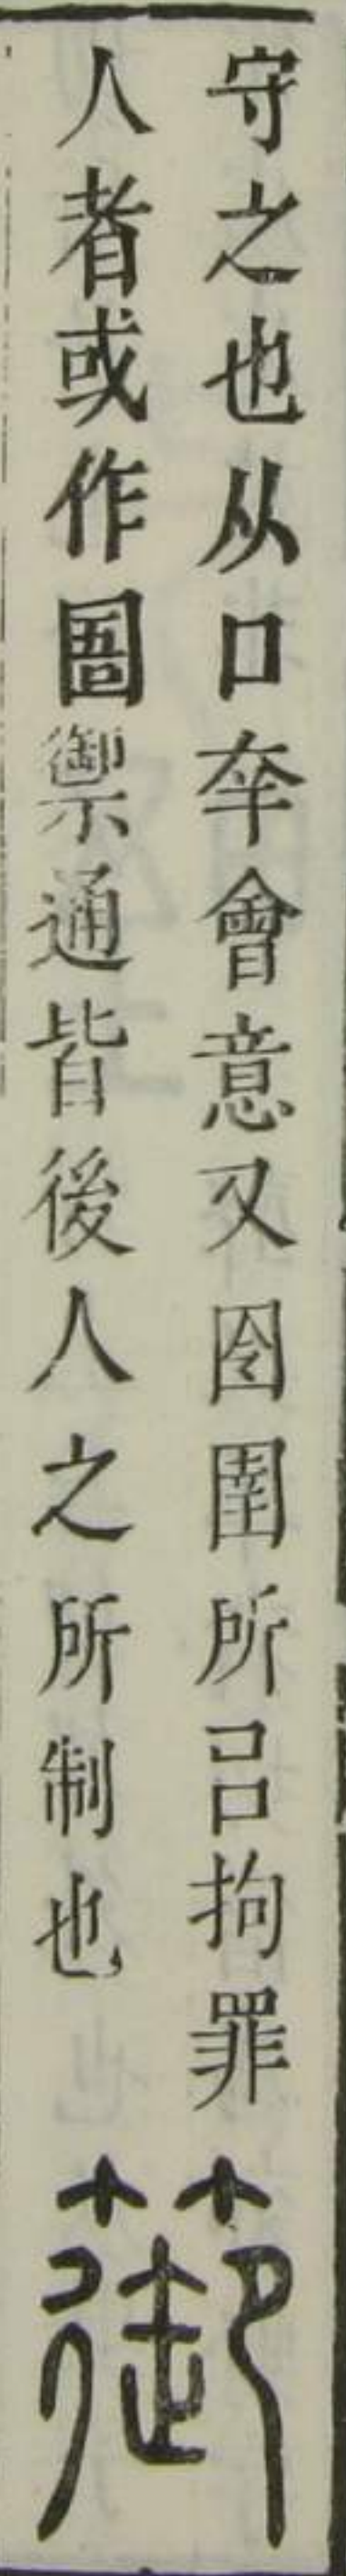 守之也从囗㚔會意又囹圉所㠯拘罪
人者或作圄禦通皆後人之所制也